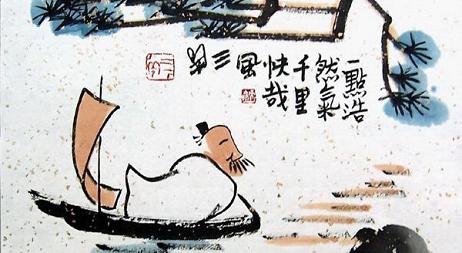 一點浩
然氣
千里
快哉
風
三